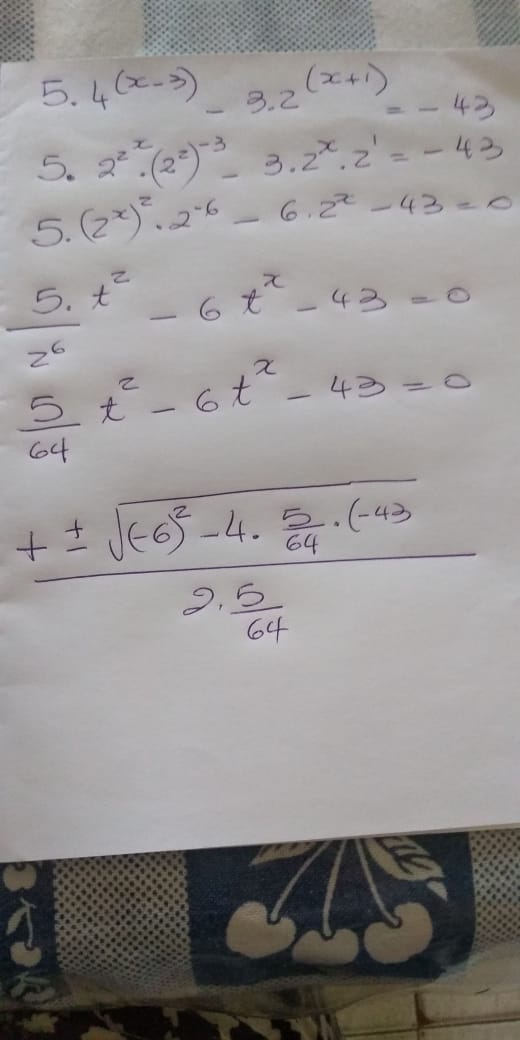 5. 4^(x-3) - 3.2^(x+1) = - 43
5. 2^2^x . (2^2)^-3 - 3.2^x . 2^1 = - 43
5. (2^x)^2 . 2^-6 - 6.2^x - 43 = 0
5. t^2 / 2^6 - 6 t^x - 43 = 0
5/64 t^2 - 6 t^x - 43 = 0
+ ± √(-6)^2 - 4. 5/64 . (-43
2. 5/64